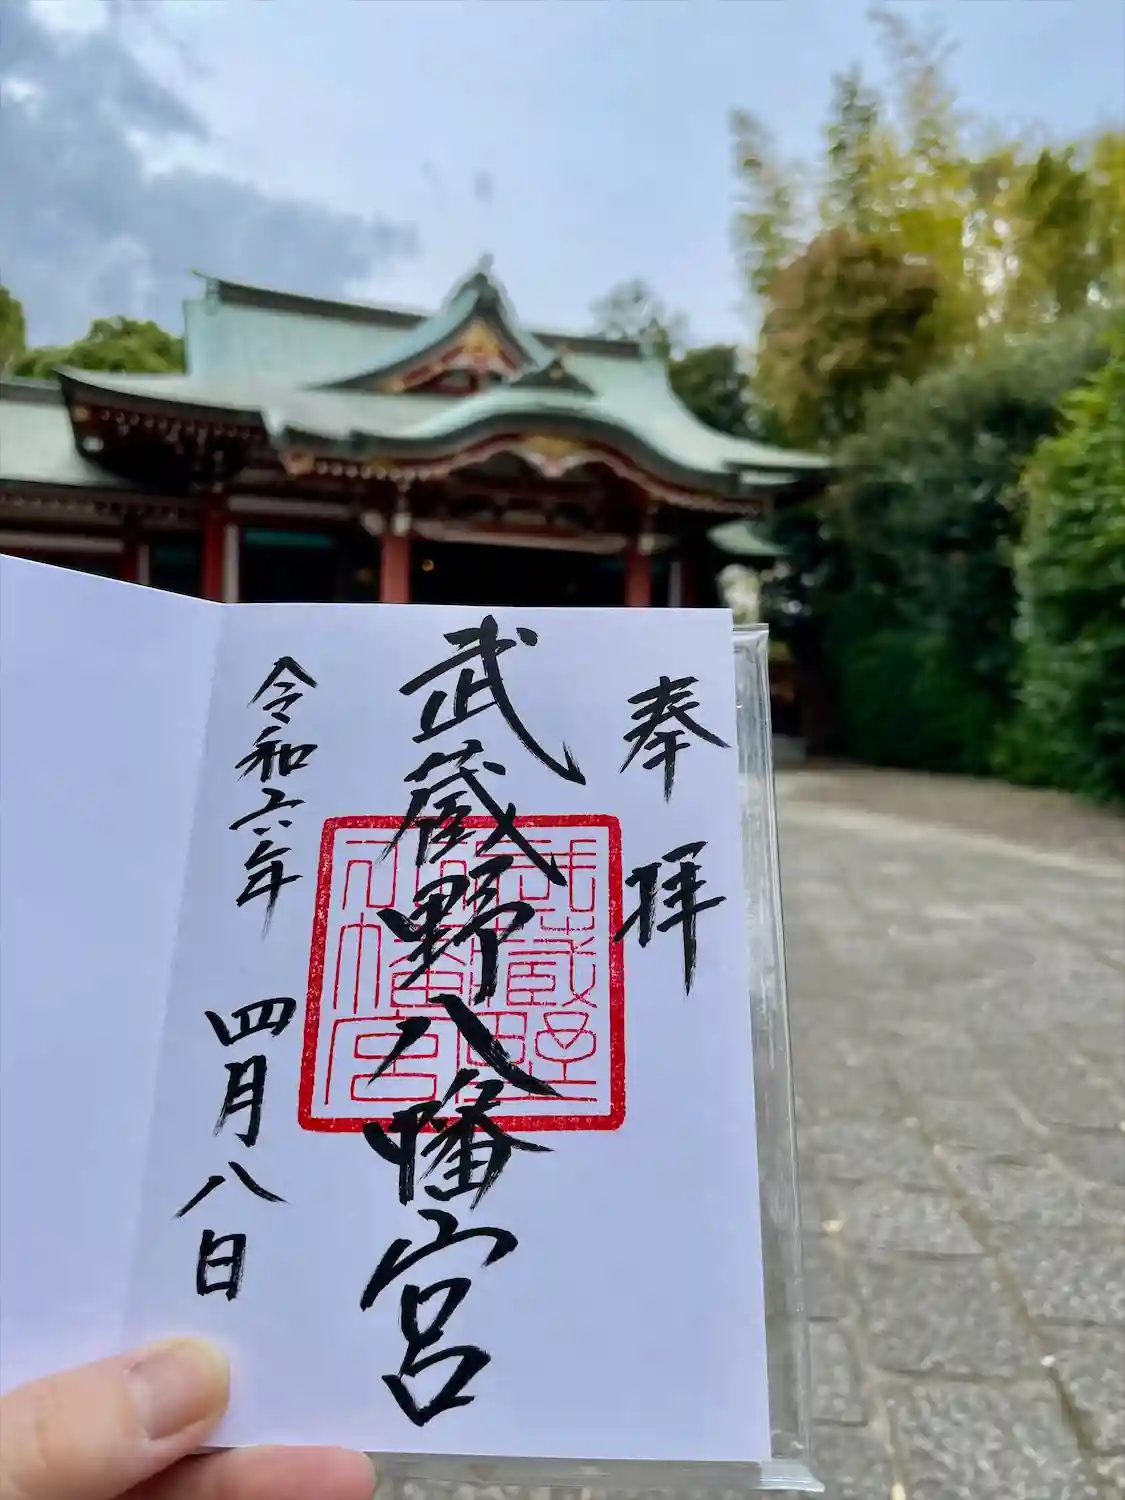 奉拝
武蔵野八幡宮
武蔵野
八幡宮
令和六年
四月八日